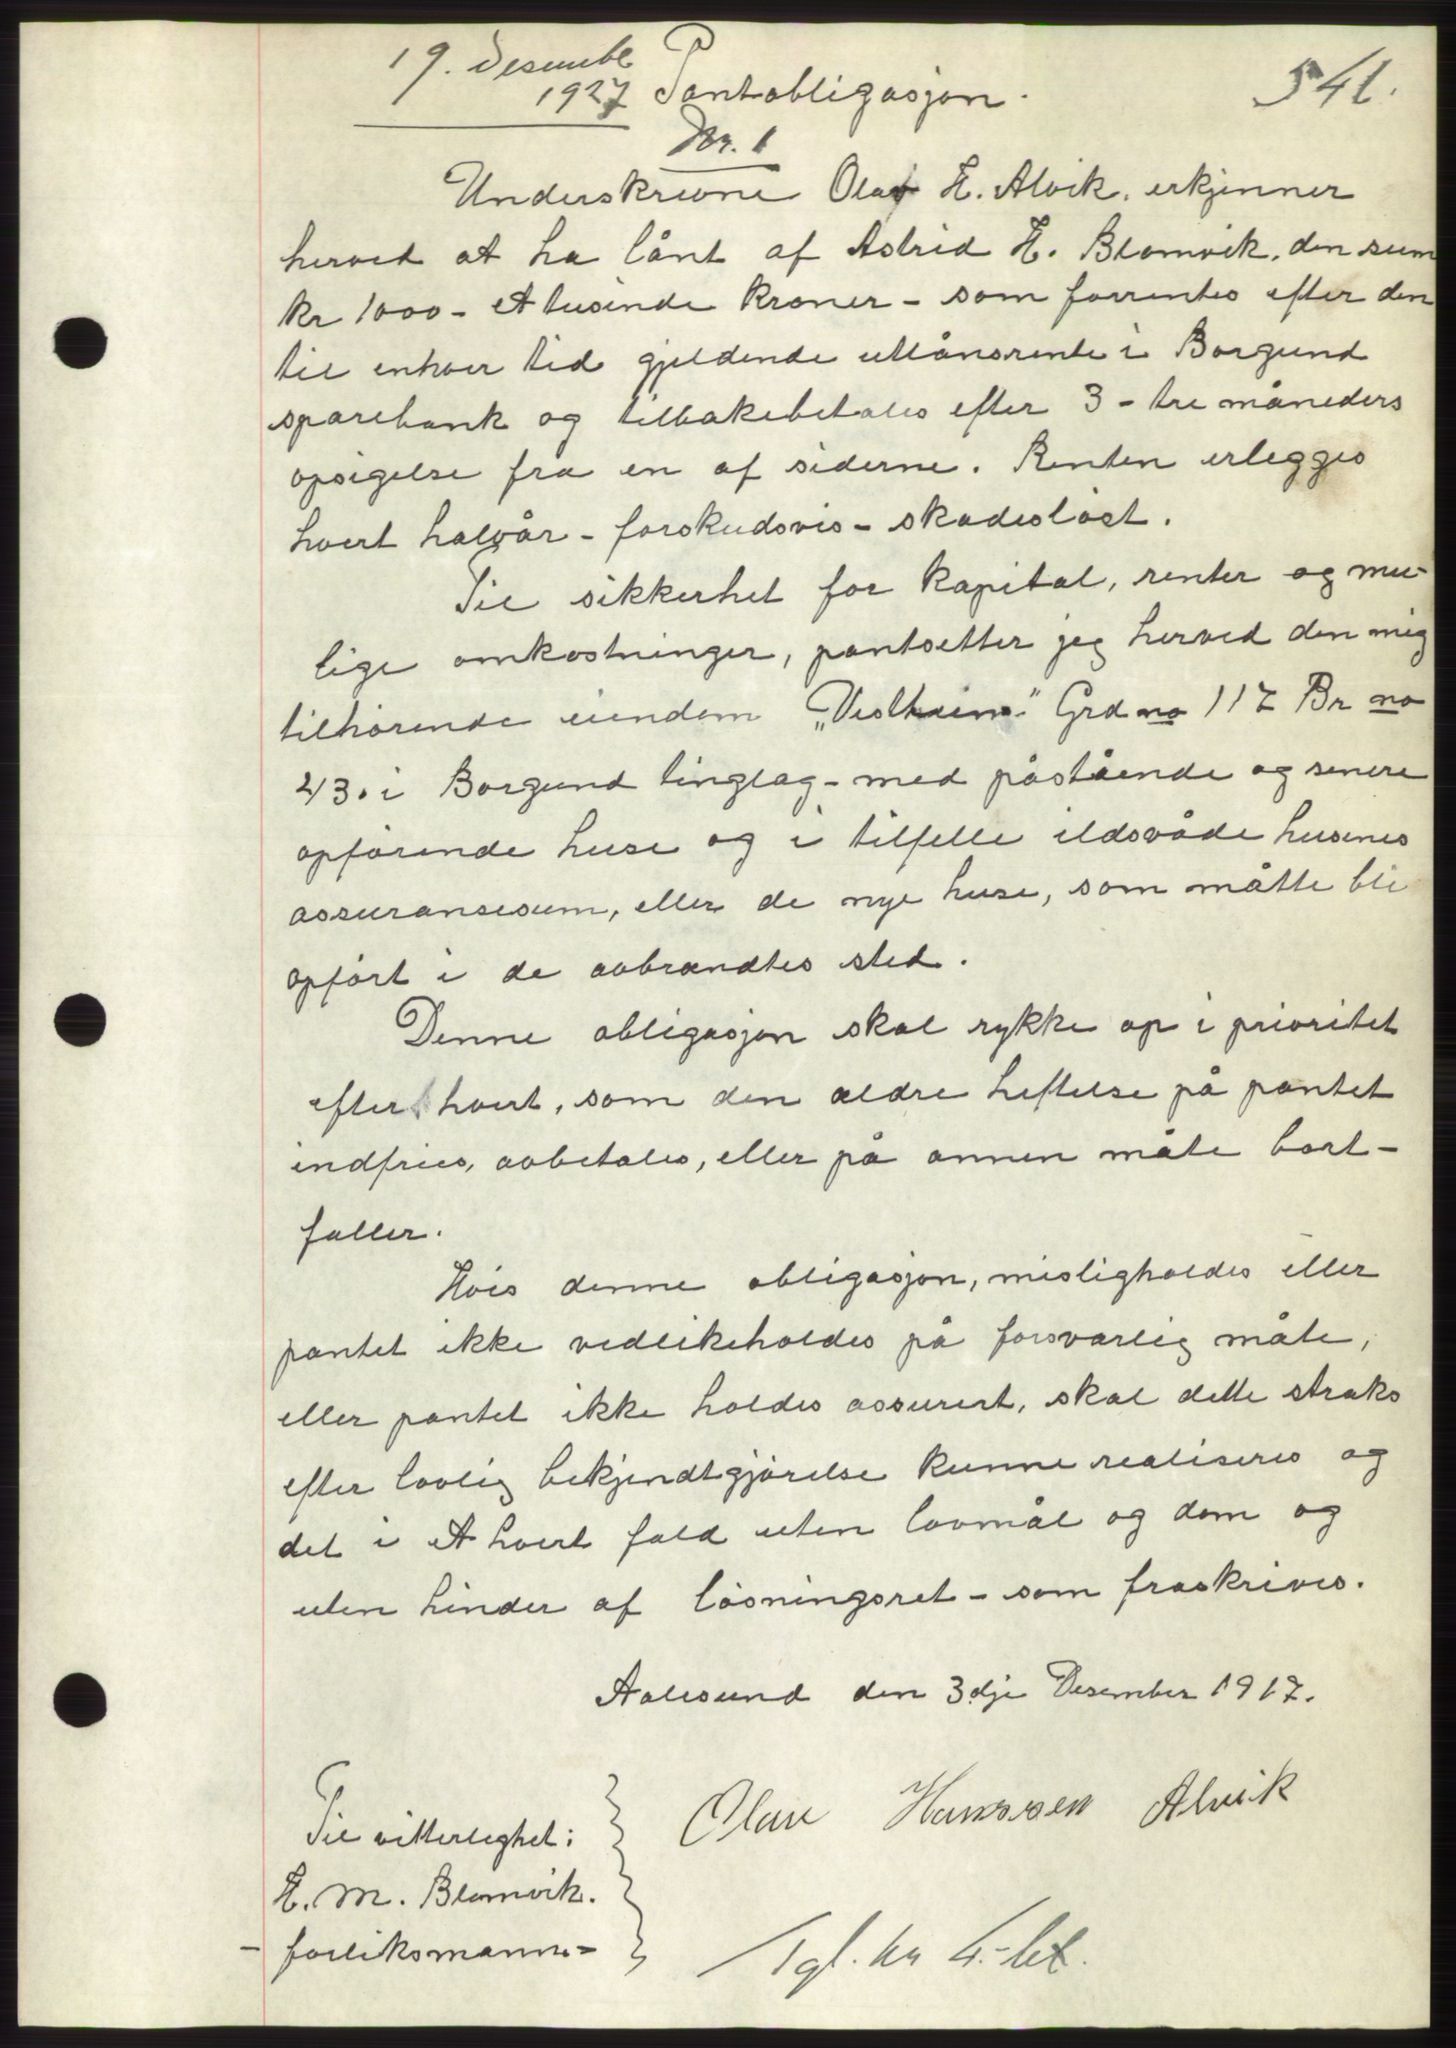 19. Desembe
1927 Pantobligasjon. 541.
Nr. 1
Underskrevne Olav H. Alvik. erkjenner
herved at ha lånt af Astrid H. Blomvik. den sum
kr 1000 - et tusinde kroner - som forrentes efter den
til enhver tid gjeldende utlånsrente i Borgund
sparebank og tilbakebetales efter 3 - tre måneders
opsigelse fra en af siderne. Renten erlegges
hvert halvår - forskudsvis - skadesløst.
Til sikkerhet for kapital, renter og mu-
lige omkostninger, pantsetter jeg herved den mig
tilhørende eiendom „Vestheim" Grd no 117 Br no
43. i Borgund tinglag - med påstående og senere
opførende huse og i tilfelle ildsvåde husenes
assuransesum, eller de nye huse, som måtte bli
opført i de avbrændtes sted.
Denne obligasjon skal rykke op i prioritet
efter hvert, som den ældre heftelse på pantet
indfries, avbetales, eller på annen måte bort-
faller.
Hvis denne obligasjon, misligholdes eller
pantet ikke vedlikeholdes på forsvarlig måte,
eller pantet ikke holdes assurert, skal dette straks
efter lovlig bekjendtgjørelse kunne realiseres og
det i et hvert fald uten lovmål og dom og
uten hinder af løsningsret - som fraskrives.
Aalesund den 3dje Desember 1917.
Til vitterlighet: Olav Hanssen Alvik
H. M. Blomvik.
- forliksmann -
Tgl. kr 4.- bet.